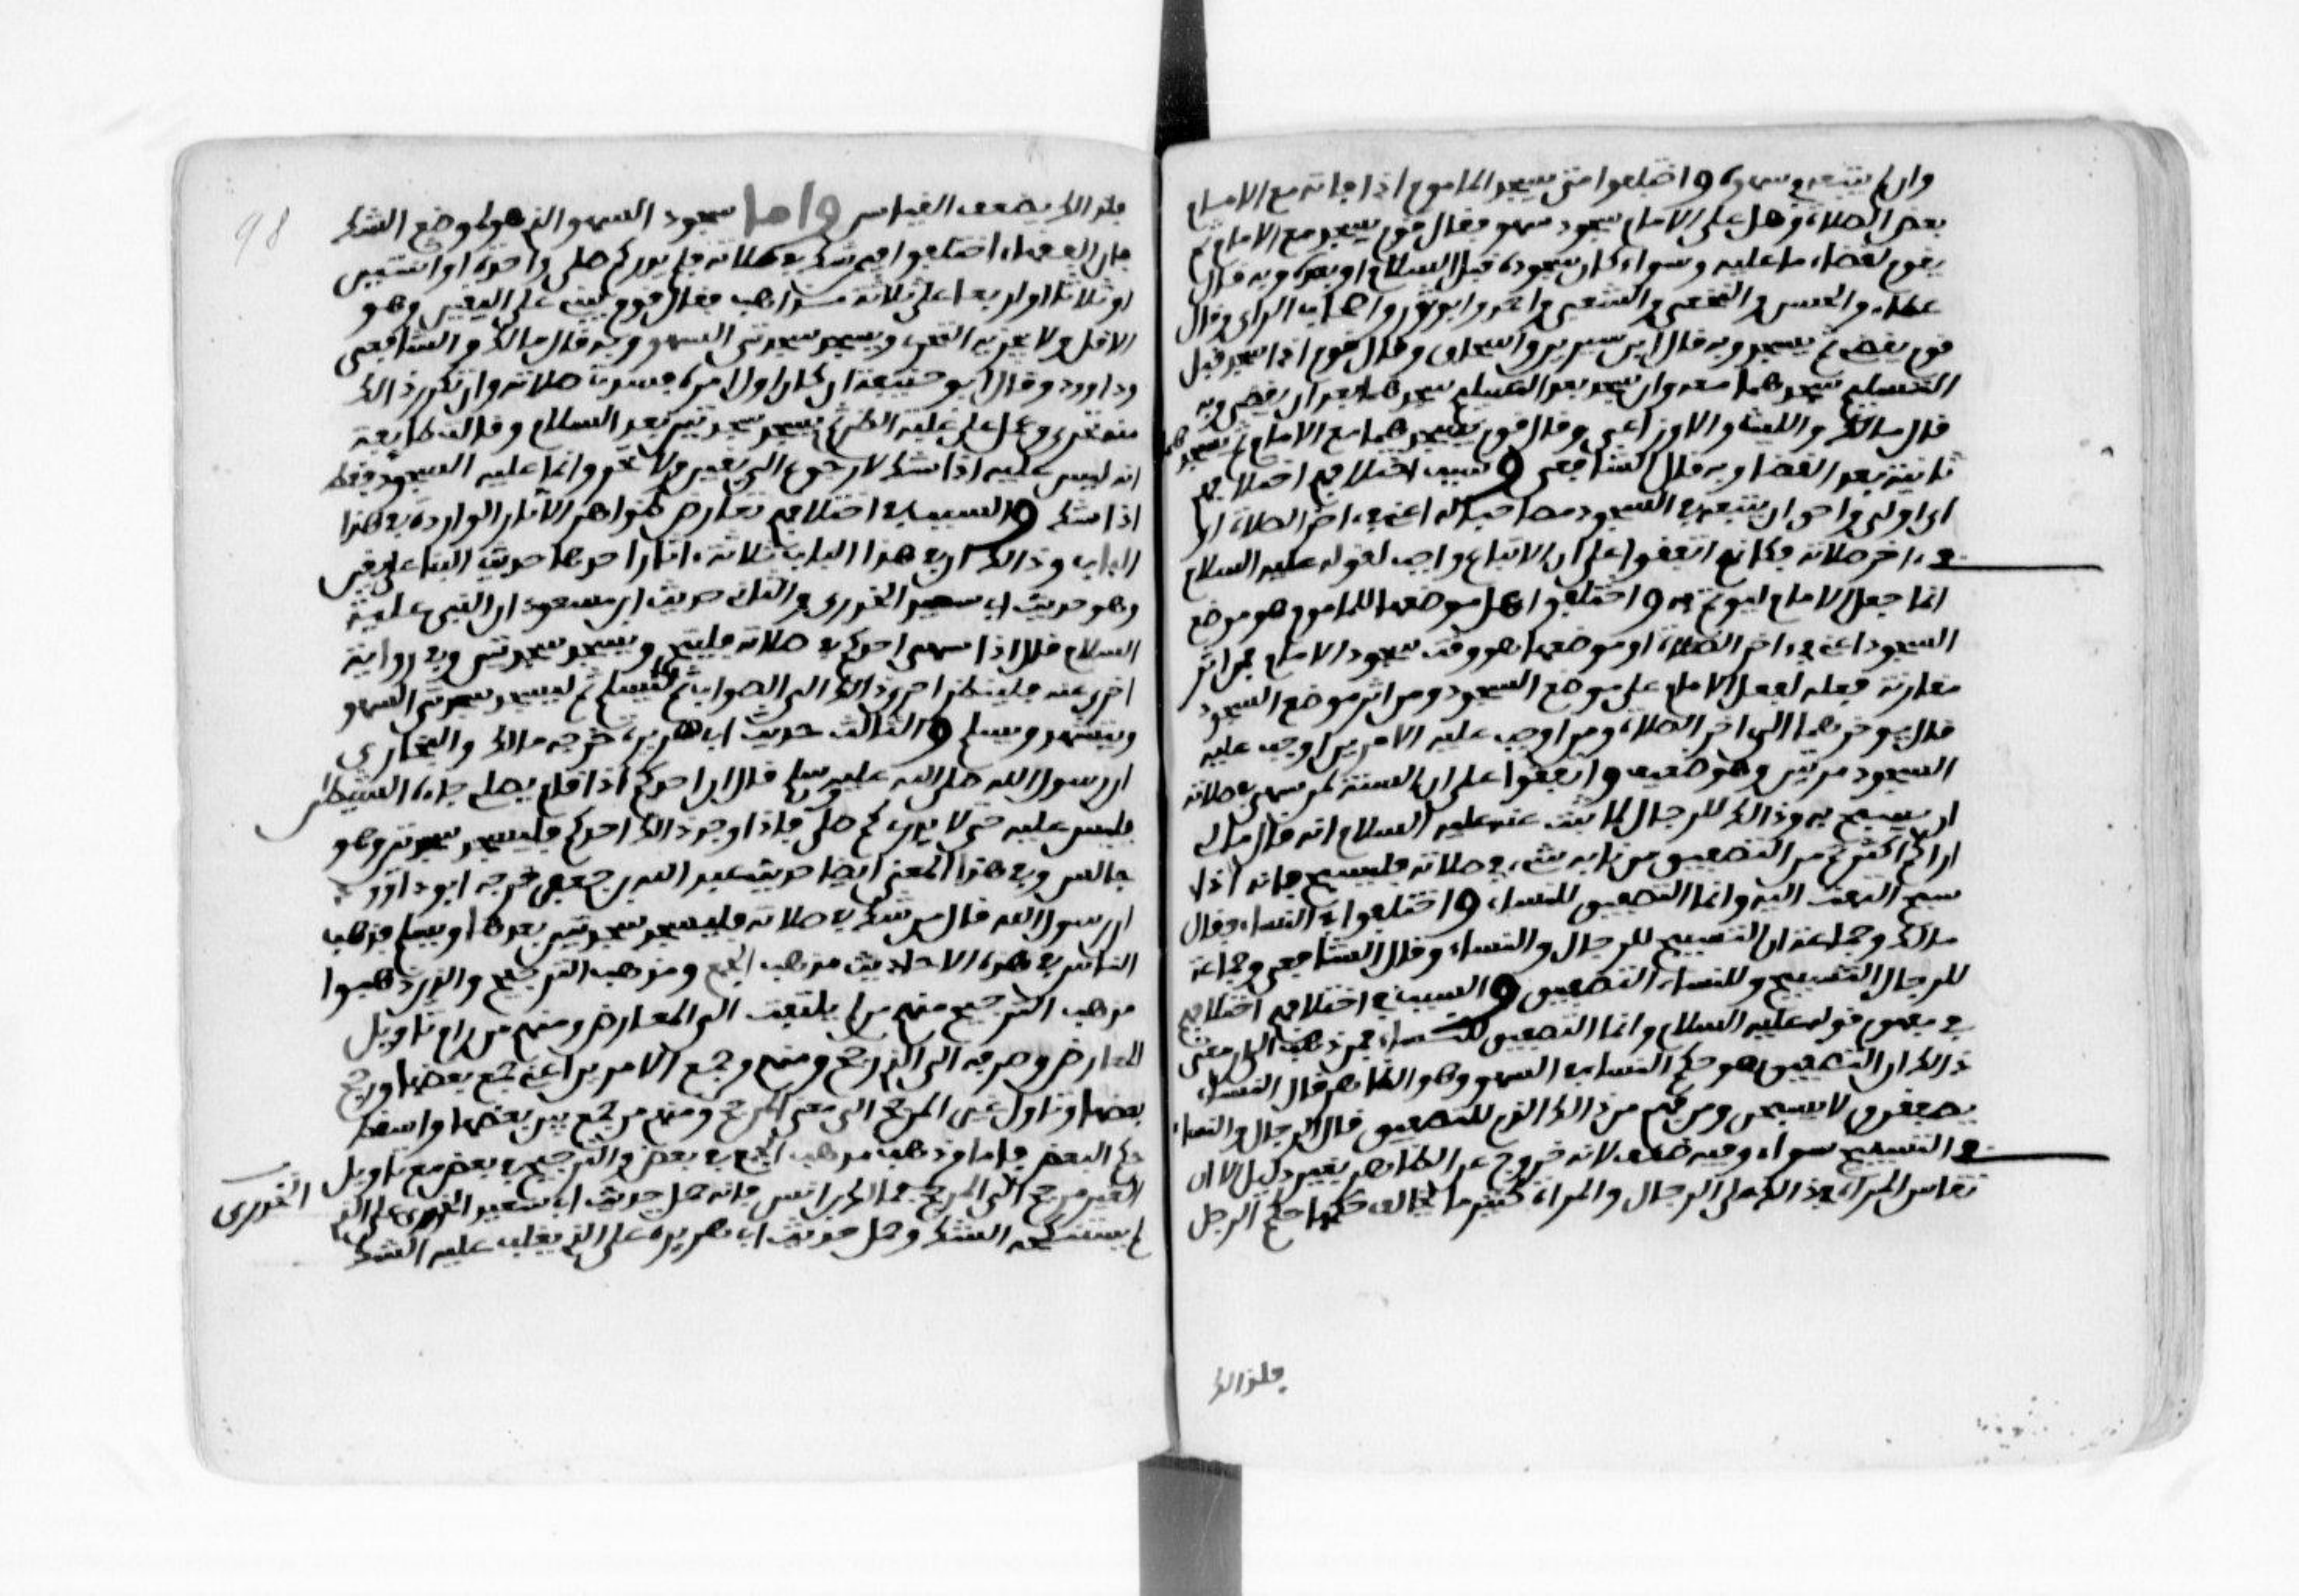 وان لم يتبعه في سهوه واختلفوا متى يسجد الماموم اذا فاته مع الامام
بعض الصلاة وعلى الامام سجود سهو فقال قوم يسجد مع الامام ثم
يقوم لقضاء ما عليه وسواء كان سجوده قبل السلام او بعده وبه قال
عطاء والحسن والنخعي والشعبي واحمد وابو ثور واصحاب الراي وقال
قوم يقضي ثم يسجد وبه قال ابن سيرين واسحاق وقال قوم اذا سجد قبل
التسليم سجدهما معه وان سجد بعد التسليم سجدهما بعد ان يقضي وبه
قال مالك والليث والاوزاعي وقال قوم يسجدهما مع الامام ثم يسجدهما
ثانية بعد القضا وبه قال الشافعي وسبب اختلافهم اختلافهم
اي اولى واحق ان يتبعه في السجود مصاحبا له اعني في اخر الصلاة او
في اخر صلاته فكانهم اتفقوا على ان الاتباع واجب لقوله عليه السلام
انما جعل الامام ليوتم به واختلفوا هل موضعها للماموم هو موضع
السجود اعني في اخر الصلاة او موضعها هو وقت سجود الامام فمن اثر
مقارنة فعله لفعل الامام على موضع السجود ومن اثر موضع السجود
قال يوخرهما الى اخر الصلاة ومن اوجب عليه الامرين اوجب عليه
السجود مرتين وهو ضعيف واتفقوا على ان السنة لمن سهى في صلاته
ان يسبح به وذالك للرجال لما ثبت عنه عليه السلام انه قال مالي
اراكم اكثرتم من التصفيق من نابه شيء في صلاته فليسبح فانه اذا
سبح التفت اليه وانما التصفيق للنساء واختلفوا في النساء فقال
مالك وجماعة ان التسبيح للرجال والنساء وقال الشافعي وجماعة
للرجال التسبيح وللنساء التصفيق والسبب في اختلافهم اختلافهم
في مفهوم قوله عليه السلام وانما التصفيق للنساء فمن ذهب الى ان معنى
ذالك ان التصفيق هو حكم النساء في السهو وهو الظاهر قال النساء
يصفقن ولا يسبحن ومن فهم من ذالك الذم للتصفيق قال الرجال والنساء
في التسبيح سواء وفيه ضعف لانه خروج عن الظاهر بغير دليل الا ان
تقاس المراة في ذالك على الرجال والمراة كثيرا ما يخالف حكمها حكم الرجل
فلذالك
98
فلذالك يضعف القياس واما سجود السهو الذي هو لموضع الشك
فان الفقهاء اختلفوا فيمن شك في صلاته فلم يدر كم صلى واحدة او اثنتين
او ثلاثا او اربعا على ثلاثة مذاهب فقال قوم يبني على اليقين وهو
الاقل ولا يجزيه التحري ويسجد سجدتي السهو وبه قال مالك والشافعي
وداوود وقال ابو حنيفة ان كان اول امره فسدت صلاته وان تكرر ذالك
منه تحرى وعمل على غلبة الظن ثم يسجد سجدتين بعد السلام وقالت طايفة
انه ليس عليه اذا شك لا رجوع الى يقين ولا تحر وانما عليه السجود فقط
اذا شك والسبب في اختلافهم تعارض ظواهر الاثار الواردة في هذا
الباب وذالك ان في هذا الباب ثلاثة اثار احدها حديث البنا على اليقين
وهو حديث ابي سعيد الخدري والثاني حديث ابن مسعود ان النبي عليه
السلام قال اذا سهى احدكم في صلاته فليتحر ويسجد سجدتين وفي رواية
اخرى عنه فلينظر احرى ذالك الى الصواب ثم ليسلم ثم ليسجد سجدتي السهو
ويتشهد ويسلم والثالث حديث ابي هريرة خرجه مالك والبخاري
ان رسول الله صلى الله عليه وسلم قال ان احدكم اذا قام يصلي جاءه الشيطان
فلبس عليه حتى لا يدري كم صلى فاذا وجد ذالك احدكم فليسجد سجدتين وهو
جالس وفي هذا المعنى ايضا حديث عبد الله بن جعفر خرجه ابو داوود
ان رسول الله قال من شك في صلاته فليسجد سجدتين بعدها ويسلم فذهب
الناس في هذه الاحاديث مذهب الجمع ومذهب الترجيح والذين ذهبوا
مذهب الترجيح منهم من لم يلتفت الى المعارض ومنهم من رام تاويل
المعارض وصرفه الى الذي رجح ومنهم وجمع الامرين اعني جمع بعضها ورجح
بعضها وتاول غير المرجح الى معنى المرجح ومنهم من جمع بين بعضها واسقط
حكم البعض فاما من ذهب مذهب الجمع في بعض والترجيح في بعض مع تاويل
الغير مرجح الى المرجح فمالك بن انس فانه حمل حديث ابي سعيد الخدري على الذي
لم يستنكحه الشك وحمل حديث ابي هريرة على الذي يغلب عليه الشك
الخدري